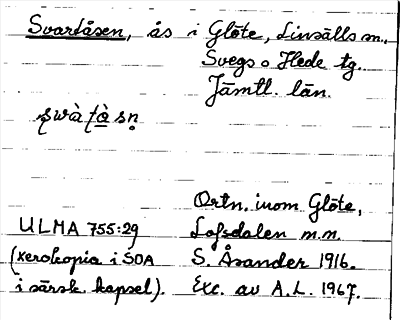 Svartåsen, ås i Glöte, Linsälls sn.,
Svegs o Hede tg.
Jämtl. län.
Ortn. inom Glöte,
ULMA 755:29 Lofsdalen m.m.
(xerokopia i SOA S. Åsander 1916.
i särsk. kapsel). Exc. av A.L. 1967.